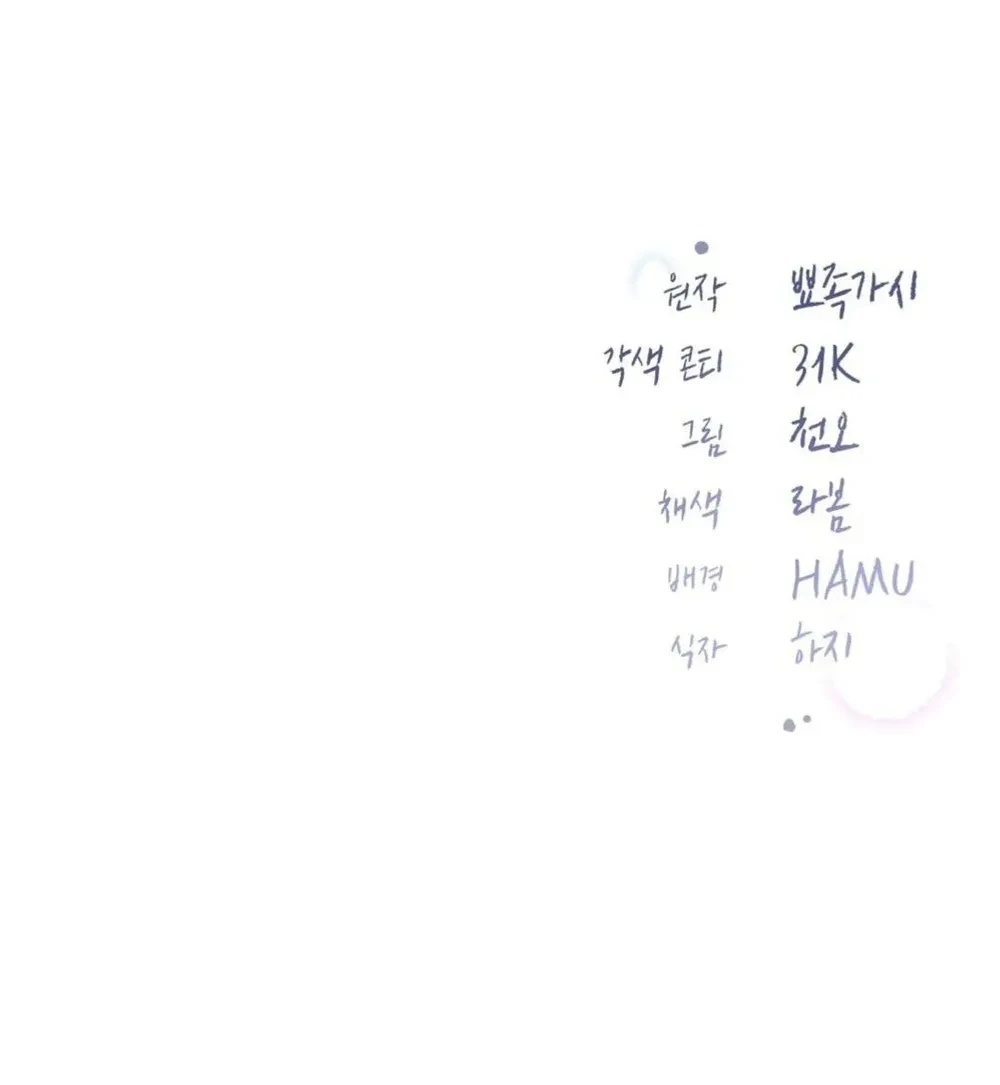 원작 뾰족가시
각색 콘티 31K
그림 천오
채색 라봄
배경 HAMU
식자 하지